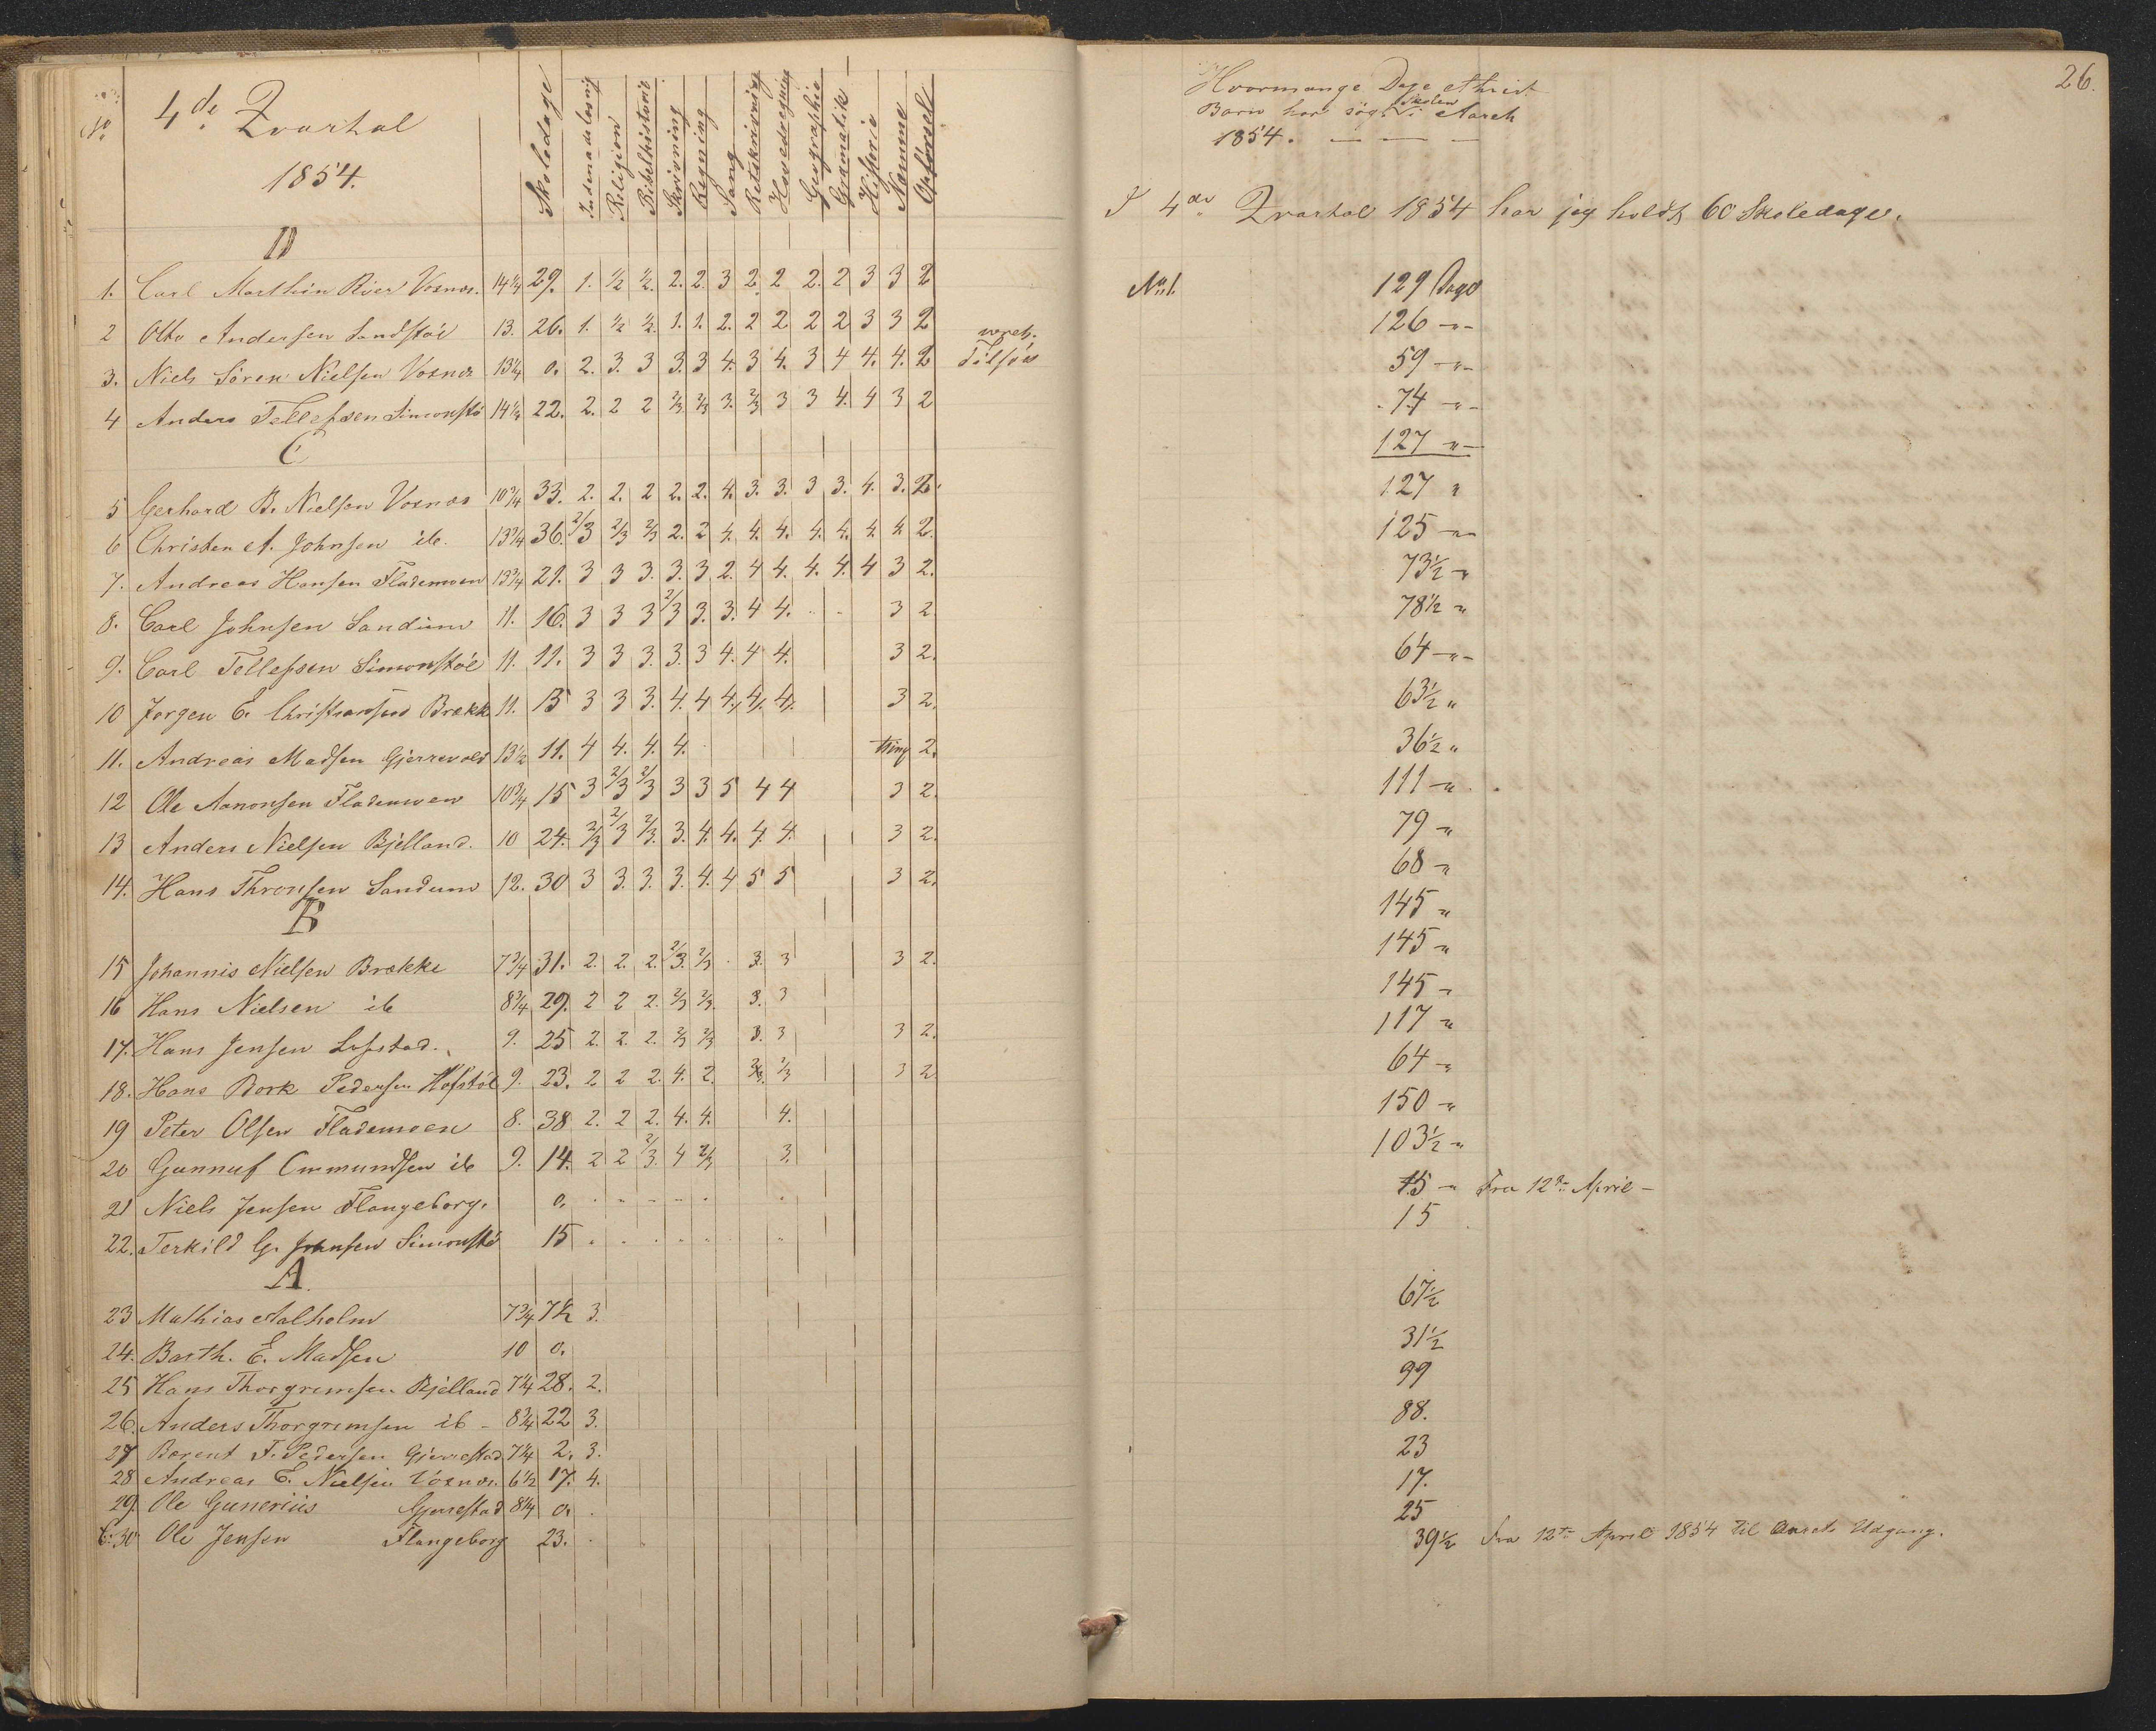 No 4de Qvartal 1854. Skoledage Indenadslæsning Religion Bibelhistorie Skrivning Regning Sang Retskrivning Hovedregning Geographie Gramatik Historie Nemme Opførsel
D
1. Carl Marthin Riier Vosnæs. 14¼ 29. 1. ½ ½. 2. 2. 3 2. 2 2. 2 3 3 2
2 Otto Andersen Sandstøl 13. 26. 1. ½ ½. 1. 1. 2. 2 2 2 2 3 3 2
3. Niels Sören Nielsen Vosnæs 13¼ 0. 2. 3. 3 3. 3 4. 3 4. 3 4 4. 4. 2 Tilsøes
4 Anders Tellefsen Simonstø 14½ 22. 2. 2 2 2/3 2/3 3. 2/3 3 3 4. 4 3 2
C
5 Gerhard B. Nielsen Vosnæs 10¾ 33. 2. 2. 2 2. 2. 4. 3. 3. 3 3. 4. 3. 2.
6 Christen A. Johnsen ib. 13¾ 36. 2/3 2/3 2/3 2. 2 4. 4. 4. 4. 4. 4. 4. 2.
7. Andreas Hansen Flademoen 13¾ 21. 3 3 3. 3. 3 2. 4 4. 4. 4. 4 3 2.
8. Carl Johnsen Sandum 11. 16. 3 3 3 2/3 3. 3. 4 4. 3 2.
9. Carl Tellefsen Simonstøl 11. 11. 3 3 3. 3. 3 4. 4 4. 3 2.
10 Jorgen E. Christiansen Brække 11. 15 3 3 3. 4. 4 4. 4. 4. 3 2.
11. Andreas Madsen Gjerrevold 13½ 11. 4 4. 4. 4. ring 2.
12 Ole Aanonsen Flademoen 10¾ 15 3 2/3 2/3 3 3 5 4 4 3 2.
13 Anders Nielsen Bjelland. 10 24. 2/3 2/3 2/3. 3. 4. 4. 4. 4. 3 2.
14. Hans Thronsen Sandum 12. 30 3 3. 3. 3. 4. 4 5 5 3 2.
B
15 Johannis Nielsen Brække 7¾ 31. 2. 2. 2. 2/3. 2/3 3. 3 3 2.
16 Hans Nielsen ib 8¾ 29. 2 2 2. 2/3 2/3. 3. 3
17. Hans Jensen Lofstad. 9. 25 2. 2. 2. 2/3 2/3 3. 3 3 2.
18. Hans Bork Pedersen Hofstøl 9. 23. 2 2 2. 4. 2. 2/3 3 2
19 Peter Olsen Flademoen 8. 38 2. 2 2. 4. 4. 4.
20 Gunnuf Ommundsen ib 9. 14. 2 2 2/3. 4 2/3 3.
21 Niels Jensen Flangeborg. 0.
22. Terkild G. Johnsen Simonstø 15
A.
23 Mathias Aalholm 7¾ 7½ 3.
24. Barth. E. Madsen 10 0.
25 Hans Thorgrimsen Bjelland 7¼ 28. 2.
26. Anders Thorgrimsen ib - 8¾ 22 3.
27 Berent F. Pedersen Gjerrestad 7¼ 2. 3.
28 Andreas E. Nielsen Vosnæs. 6½ 17. 4.
29. Ole Gunerius Gjerrestad 8¼ 0.
30 Ole Jensen Flangeborg 23.
26.
Hvormange Dage ethvert
Barn har søgt Skolen i Aaret
1854. — — —
I 4de Qvartal 1854 har jeg holdt 60 Skoledage.
No 1. 129 Dage
126 -"-
59 -"-
74 -"-
127 "-
127 "
125 -"-
73½ -"
78½ "
64 -"-
63½ "
36½ "
111 -"
79 -"
68 -"
145 "
145 -"
145 -"
117 -"
64 -"
150 -"
103½ -"
15 -" Fra 12te April -
15
67½
31½
99
88.
23
17.
25
39½ Fra 12te April 1854 til Aarets Udgang.